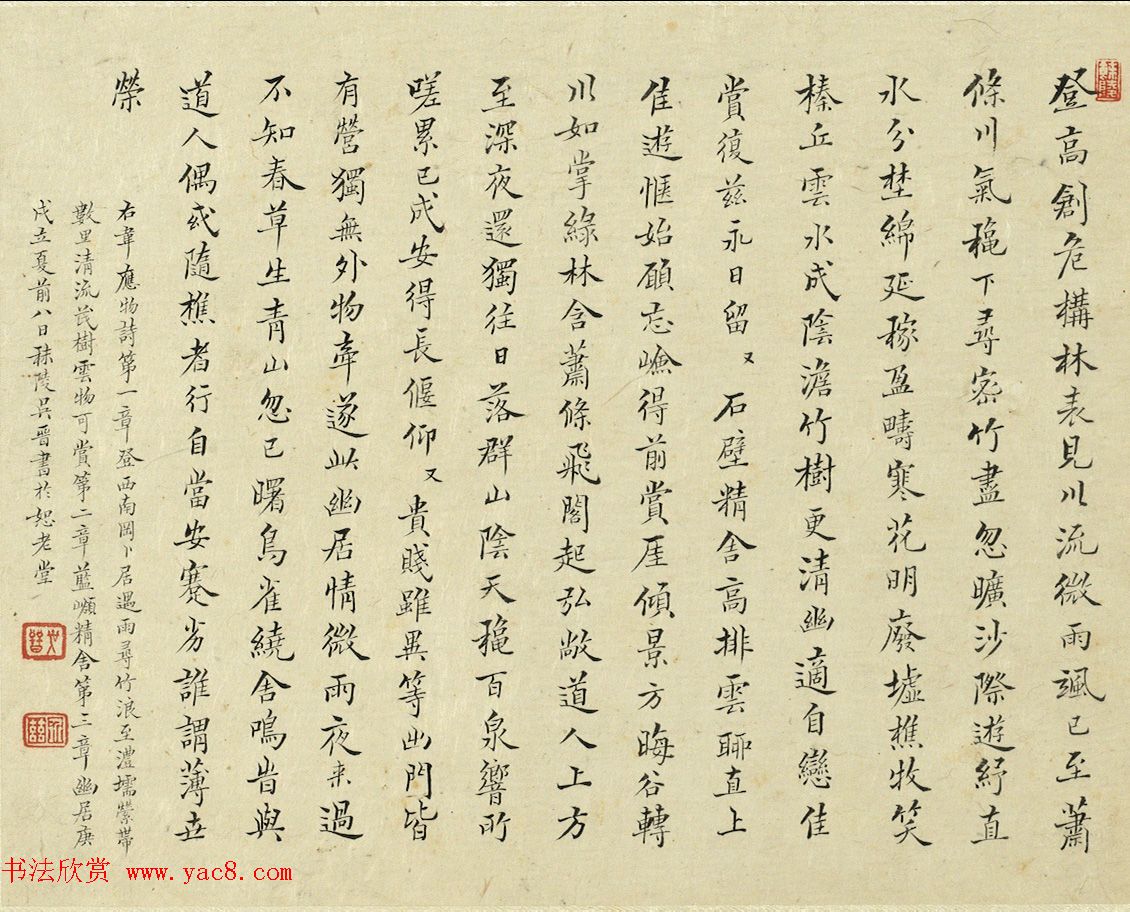 登高創危構林表見川流微雨颯已至蕭
條川氣穐下尋密竹盡忽曠沙際遊紆直
水分埜綿延稼盈疇寒花明廢墟樵牧笑
榛丘雲水成陰澹竹樹更清幽適自戀佳
賞復茲永日留 又 石壁精舍高排雲聊直上
佳遊愜始願忘嶮得前賞厓傾景方晦谷轉
川如掌綠林含蕭條飛閣起弘敞道人上方
至深夜還獨往日落群山陰天穐百泉響所
嗟累已成安得長偃仰 又 貴賤雖異等出門皆
有營獨無外物牽遂此幽居情微雨夜來過
不知春草生青山忽已曙鳥雀繞舍鳴昔與
道人偶或隨樵者行自當安蹇劣誰謂薄世
榮
右韋應物詩第一章登西南岡卜居遇雨尋竹浪至澧壖縈帶
數里清流茂樹雲物可賞第二章藍嶺精舍第三章幽居庚
戌立夏前八日秣陵吳晉書於恕老堂
书法欣赏 www.yac8.com